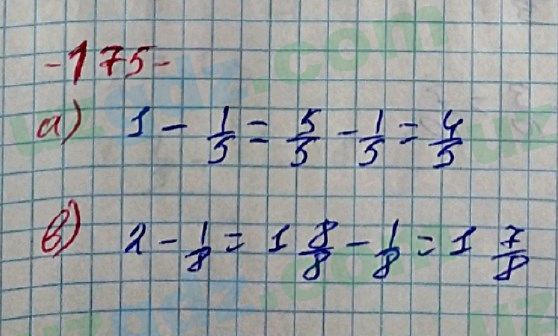 -175-
а) 1 - 1/5 = 5/5 - 1/5 = 4/5
в) 2 - 1/8 = 1 8/8 - 1/8 = 1 7/8